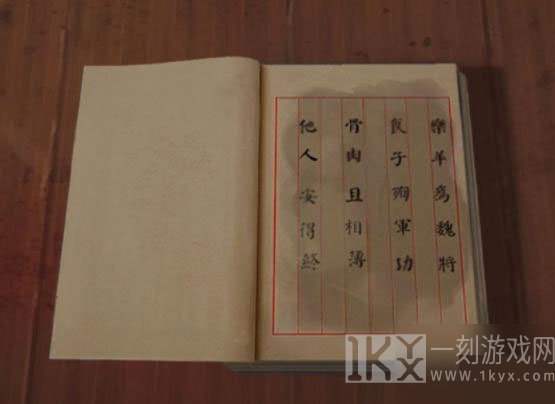 樂羊為魏將
食子殉軍功
骨肉且相薄
他人安得終
1KYX一刻游戏网
www.1kyx.com